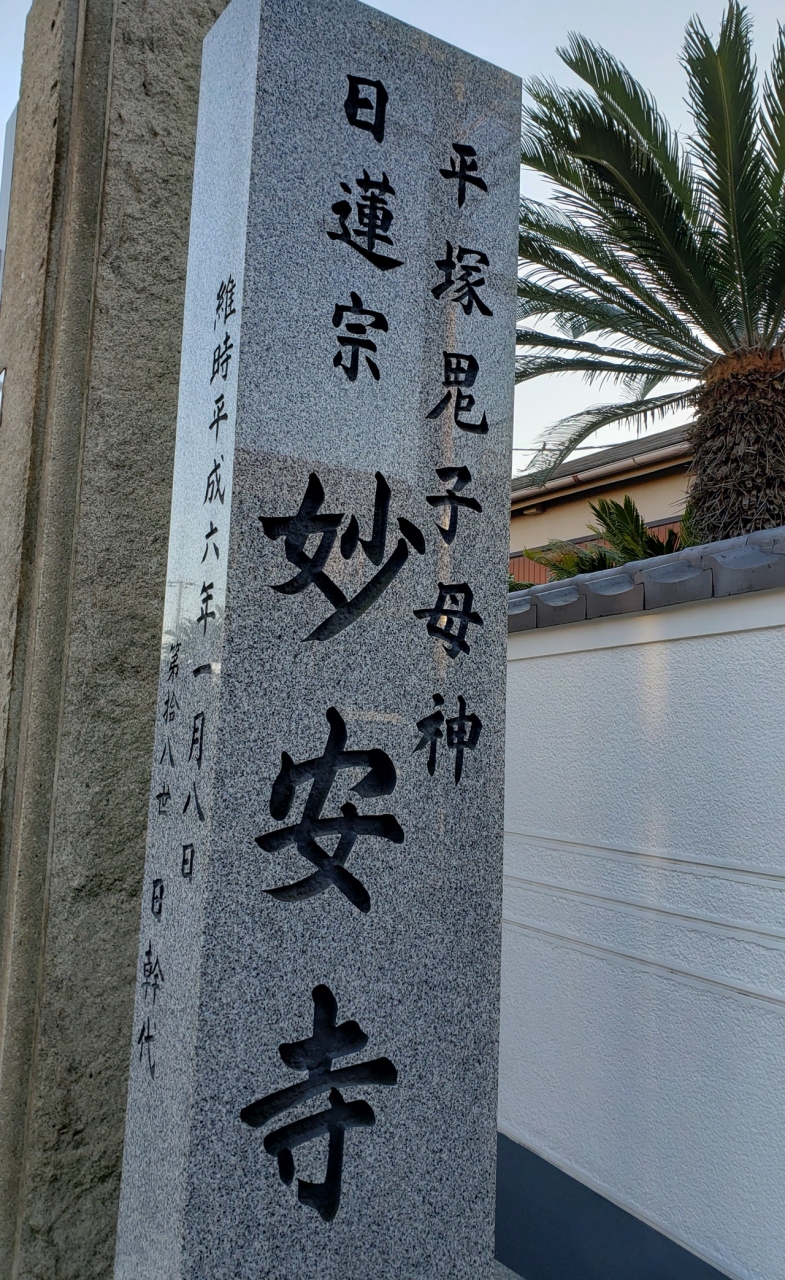 平塚鬼子母神
日蓮宗 妙安寺
維時平成六年一月八日
第拾八世 日幹代